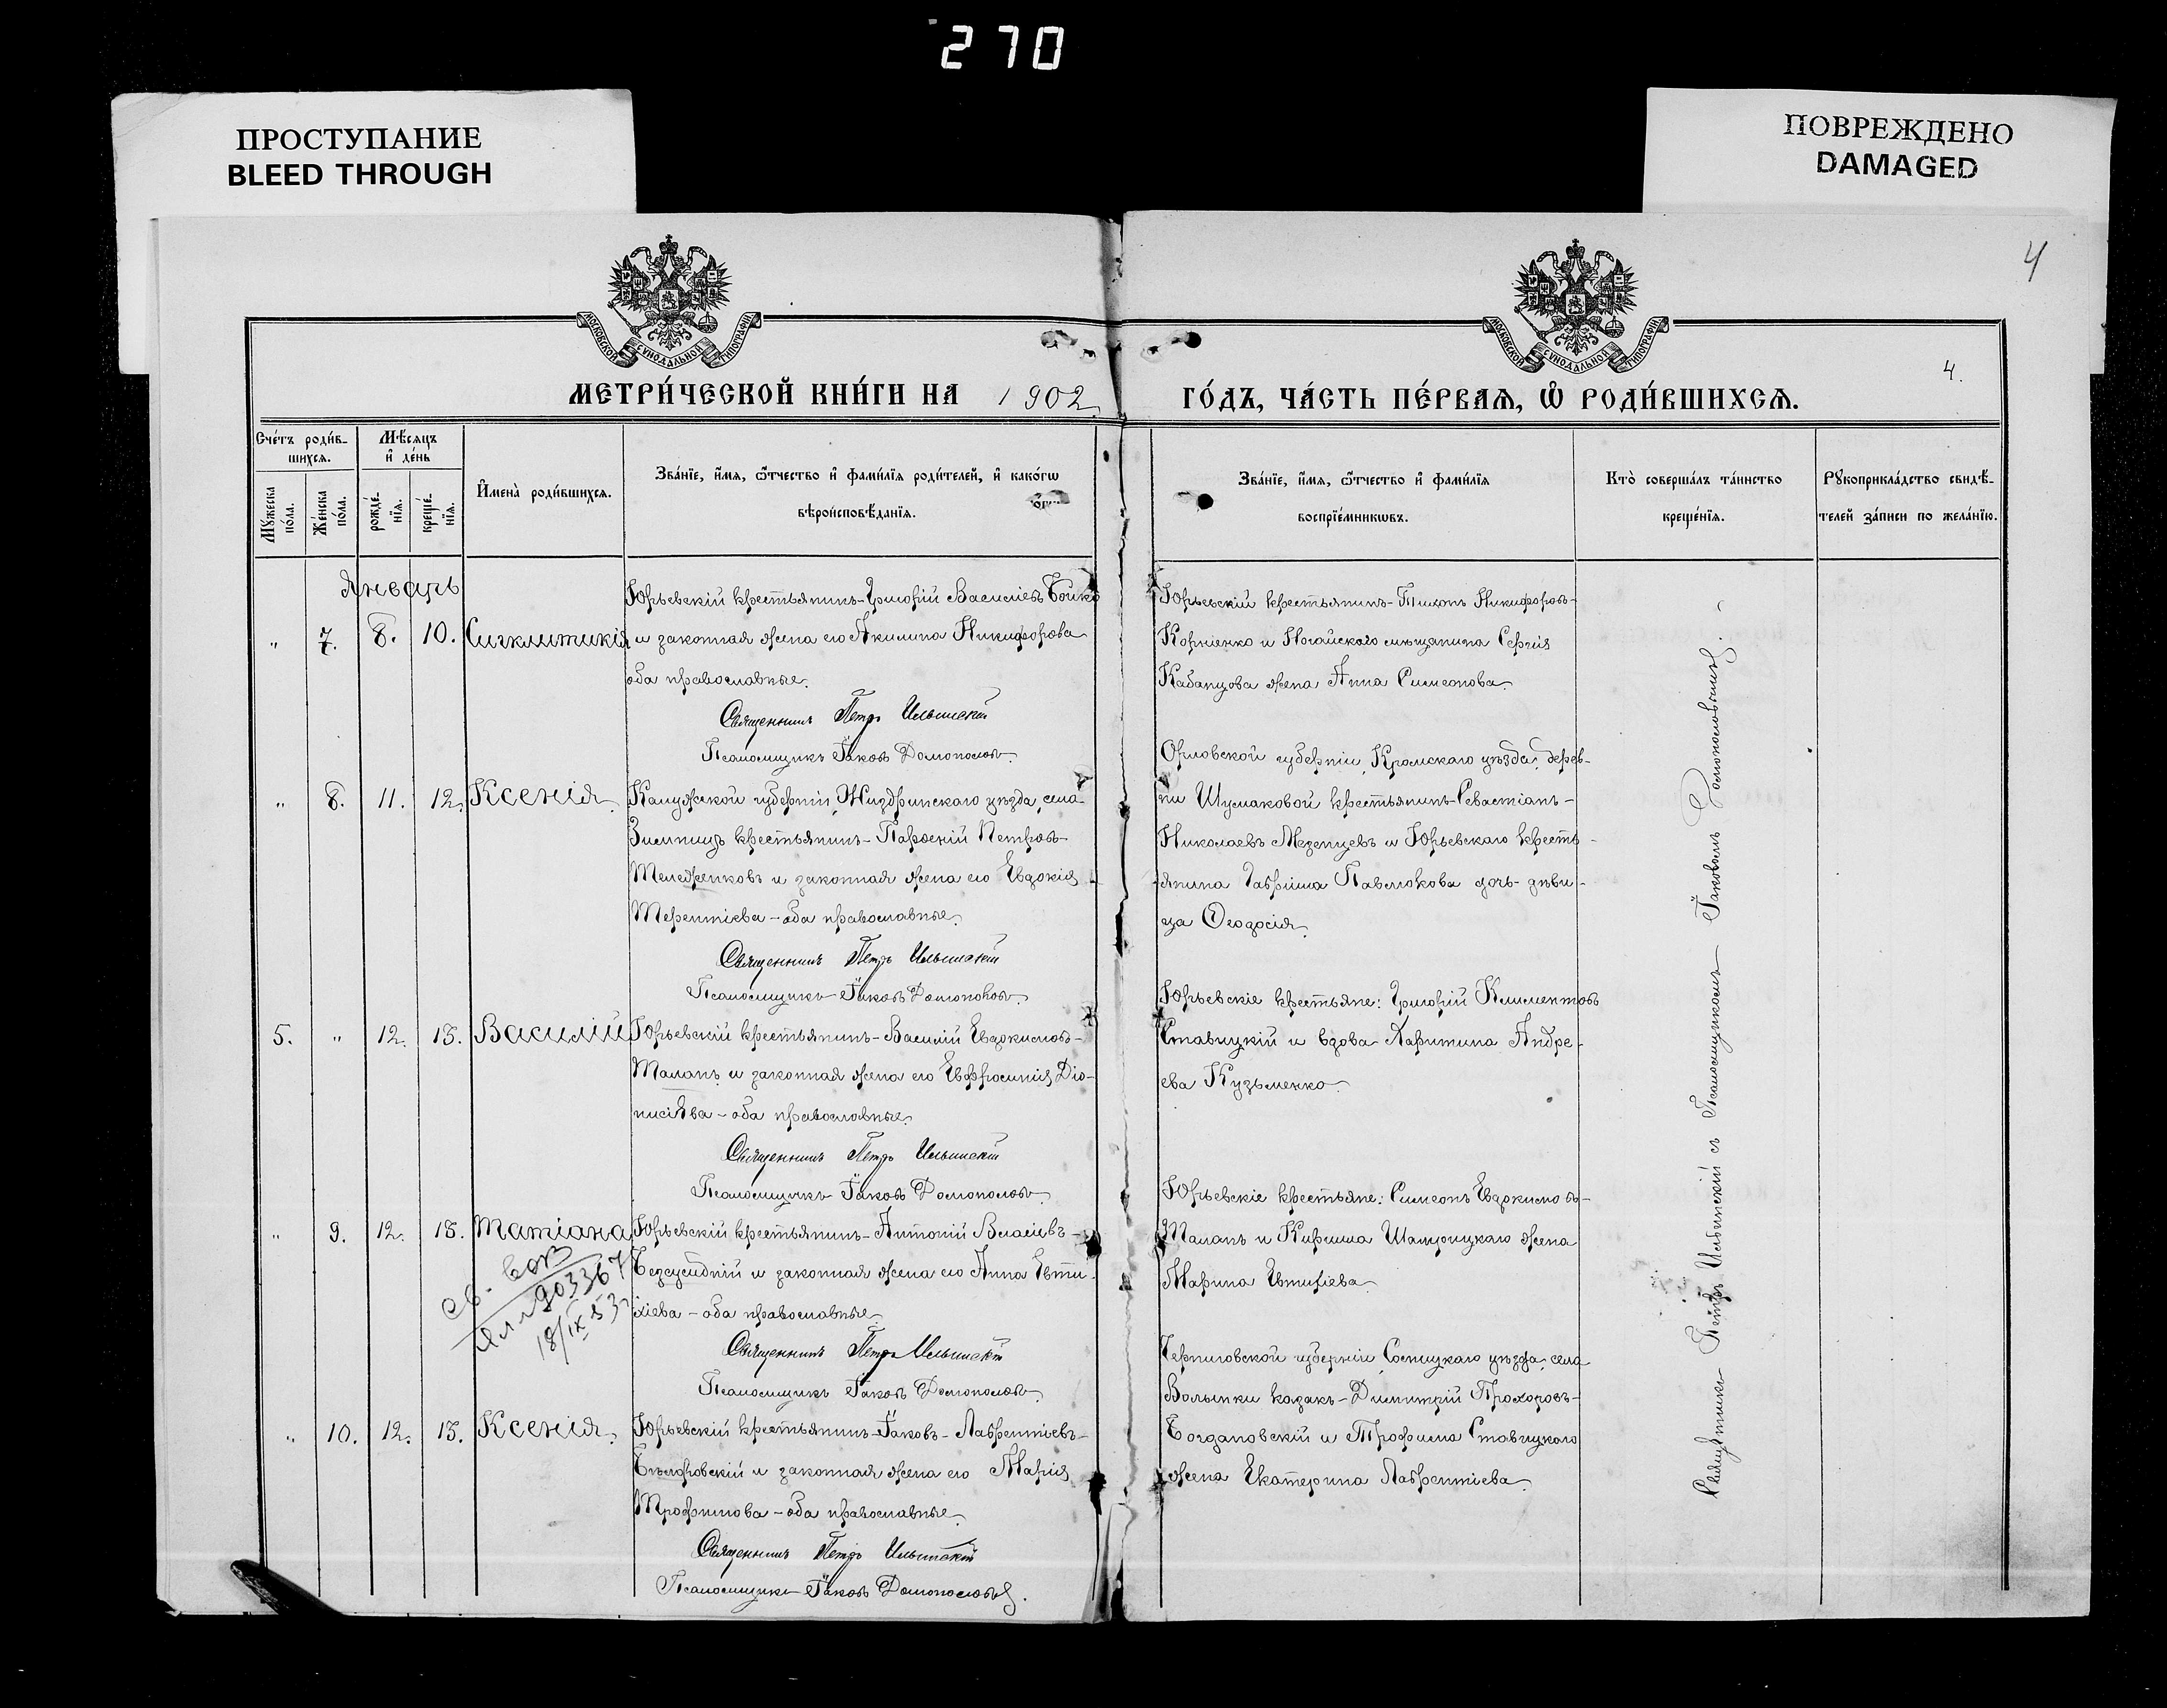 270
ПРОСТУПАНИЕ
BLEED THROUGH
ПОВРЕЖДЕНО
DAMAGED
4
МОСКОВСКОЙ СѴНОДАЛЬНОЙ ТИПОГРАФІИ
МОСКОВСКОЙ СѴНОДАЛЬНОЙ ТИПОГРАФІИ
4.
МЕТРИ́ЧЕСКОЙ КНИ́ГИ НА 1902
ГО́ДЪ, ЧА́СТЬ ПЕ́РВАѦ, Ѽ РОДИ́ВШИХСѦ.
Сче́тъ роди́в-
шихсѧ.
Мѣ́сѧцъ
и҆ де́нь
Мꙋ́жеска
по́ла.
Же́нска
по́ла.
рожде́-
нїѧ.
креще́-
нїѧ.
И҆мена̀ роди́вшихсѧ.
Зва́нїе, и҆́мѧ, ѻ҆́тчество и҆ фами́лїѧ роди́телей, и҆ како́гѡ
вѣроисповѣ́данїѧ.
Зва́нїе, и҆́мѧ, ѻ҆́тчество и҆ фами́лїѧ
воспрїе́мникѡвъ.
Кто̀ соверша́лъ та́инство
креще́нїѧ.
Рꙋкоприкла́дство свидѣ́-
телей за́писи по жела́нїю.
Январь
" 7. 8. 10. Сигклитикія
Юрьевскій крестьянинъ-Григорій Василіевъ Бойко
и законная жена его Акилина Никифорова
оба православные.
Священникъ Петръ Ильинскій
Псаломщикъ Іаковъ
Юрьевскій крестьянинъ-Тихонъ Никифоровъ-
Корніенко и Ногайскаго мѣщанина Сергія
Кабанцова жена Анна Симеонова.
" 8. 11. 12. Ксенія.
Калужской губерніи, Жиздринскаго уѣзда, села-
Зимницъ крестьянинъ- Петровъ-
и законная жена его Евдокія
Терентіева-оба православные.
Священникъ Петръ Ильинскій
Псаломщикъ Іаковъ
Орловской губерніи, Кромскаго уѣзда, дерев-
ни Шумаковой крестьянинъ-Севастіанъ-
Николаевъ Мезенцевъ и Юрьевскаго кресть-
янина Гавріила Павлюкова дочь-дѣви-
ца Ѳеодосія.
5. " 12. 13. Василій
Юрьевскій крестьянинъ-Василій Евдокимовъ-
Таланъ и законная жена его Евфросинія Діо-
нисіева-оба православные.
Священникъ Петръ Ильинскій
Псаломщикъ Іаковъ
Юрьевскіе крестьяне: Григорій Климентовъ
Ставицкій и вдова Харитина Андре-
ева Кузьменко.
" 9. 12. 13. Татіана
Юрьевскій крестьянинъ-Антоній Власіевъ-
и законная жена его Анна Евти-
хіева-оба православные.
Священникъ Петръ Ильинскій
Псаломщикъ Іаковъ
Юрьевскіе крестьяне: Симеонъ Евдокимовъ-
Таланъ и Кирилла жена
Марина Евтихіева.
903367
18/IX 53
" 10. 12. 13. Ксенія.
Юрьевскій крестьянинъ-Іаковъ-Лаврентіевъ-
и законная жена его Марія
Трофимова-оба православные.
Священникъ Петръ Ильинскій
Псаломщикъ Іаковъ
Черниговской губерніи, Сосницкаго уѣзда, села
Волынки козакъ-Димитрій Прохоровъ-
Богдановскій и Трофима Ставицкаго
жена Екатерина Лаврентіева.
Священникъ Петръ Ильинскій съ Псаломщикомъ Іаковомъ